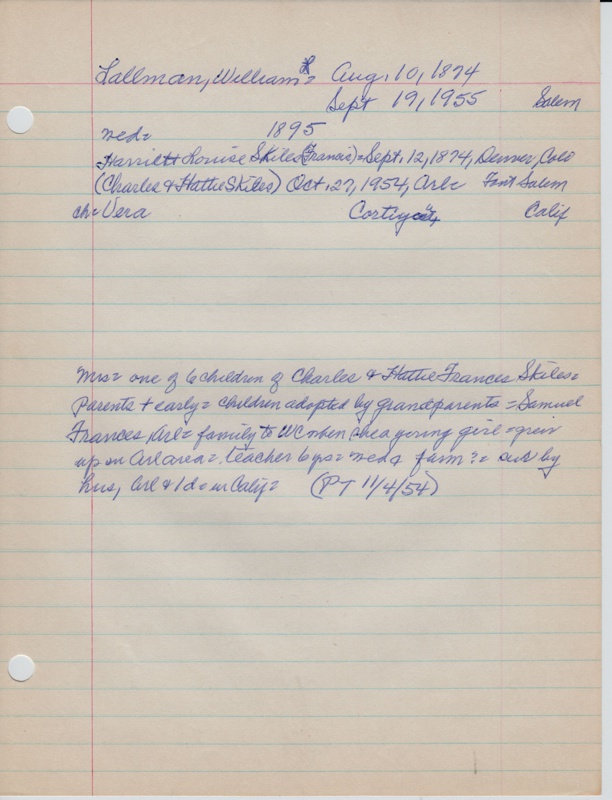 Lallman, William F = Aug. 10, 1874
Sept 19, 1955 Salem
wed = 1895
Harriett Louise Skiles (Francis) = Sept. 12, 1874, Denver, Colo
(Charles & Hattie Skiles) Oct. 27, 1954, Salem
ch = Vera Calif
Mrs = one of 6 children of Charles & Hattie Frances Skiles =
parents + early = children adopted by grandparents = Samuel
Frances, Arl = family to WC when she a young girl = grew
up on Arl area = teacher 6 yrs = wed & farm ? = sur by
hus, Arl & 1 d = in Calif = (PT 11/4/54)